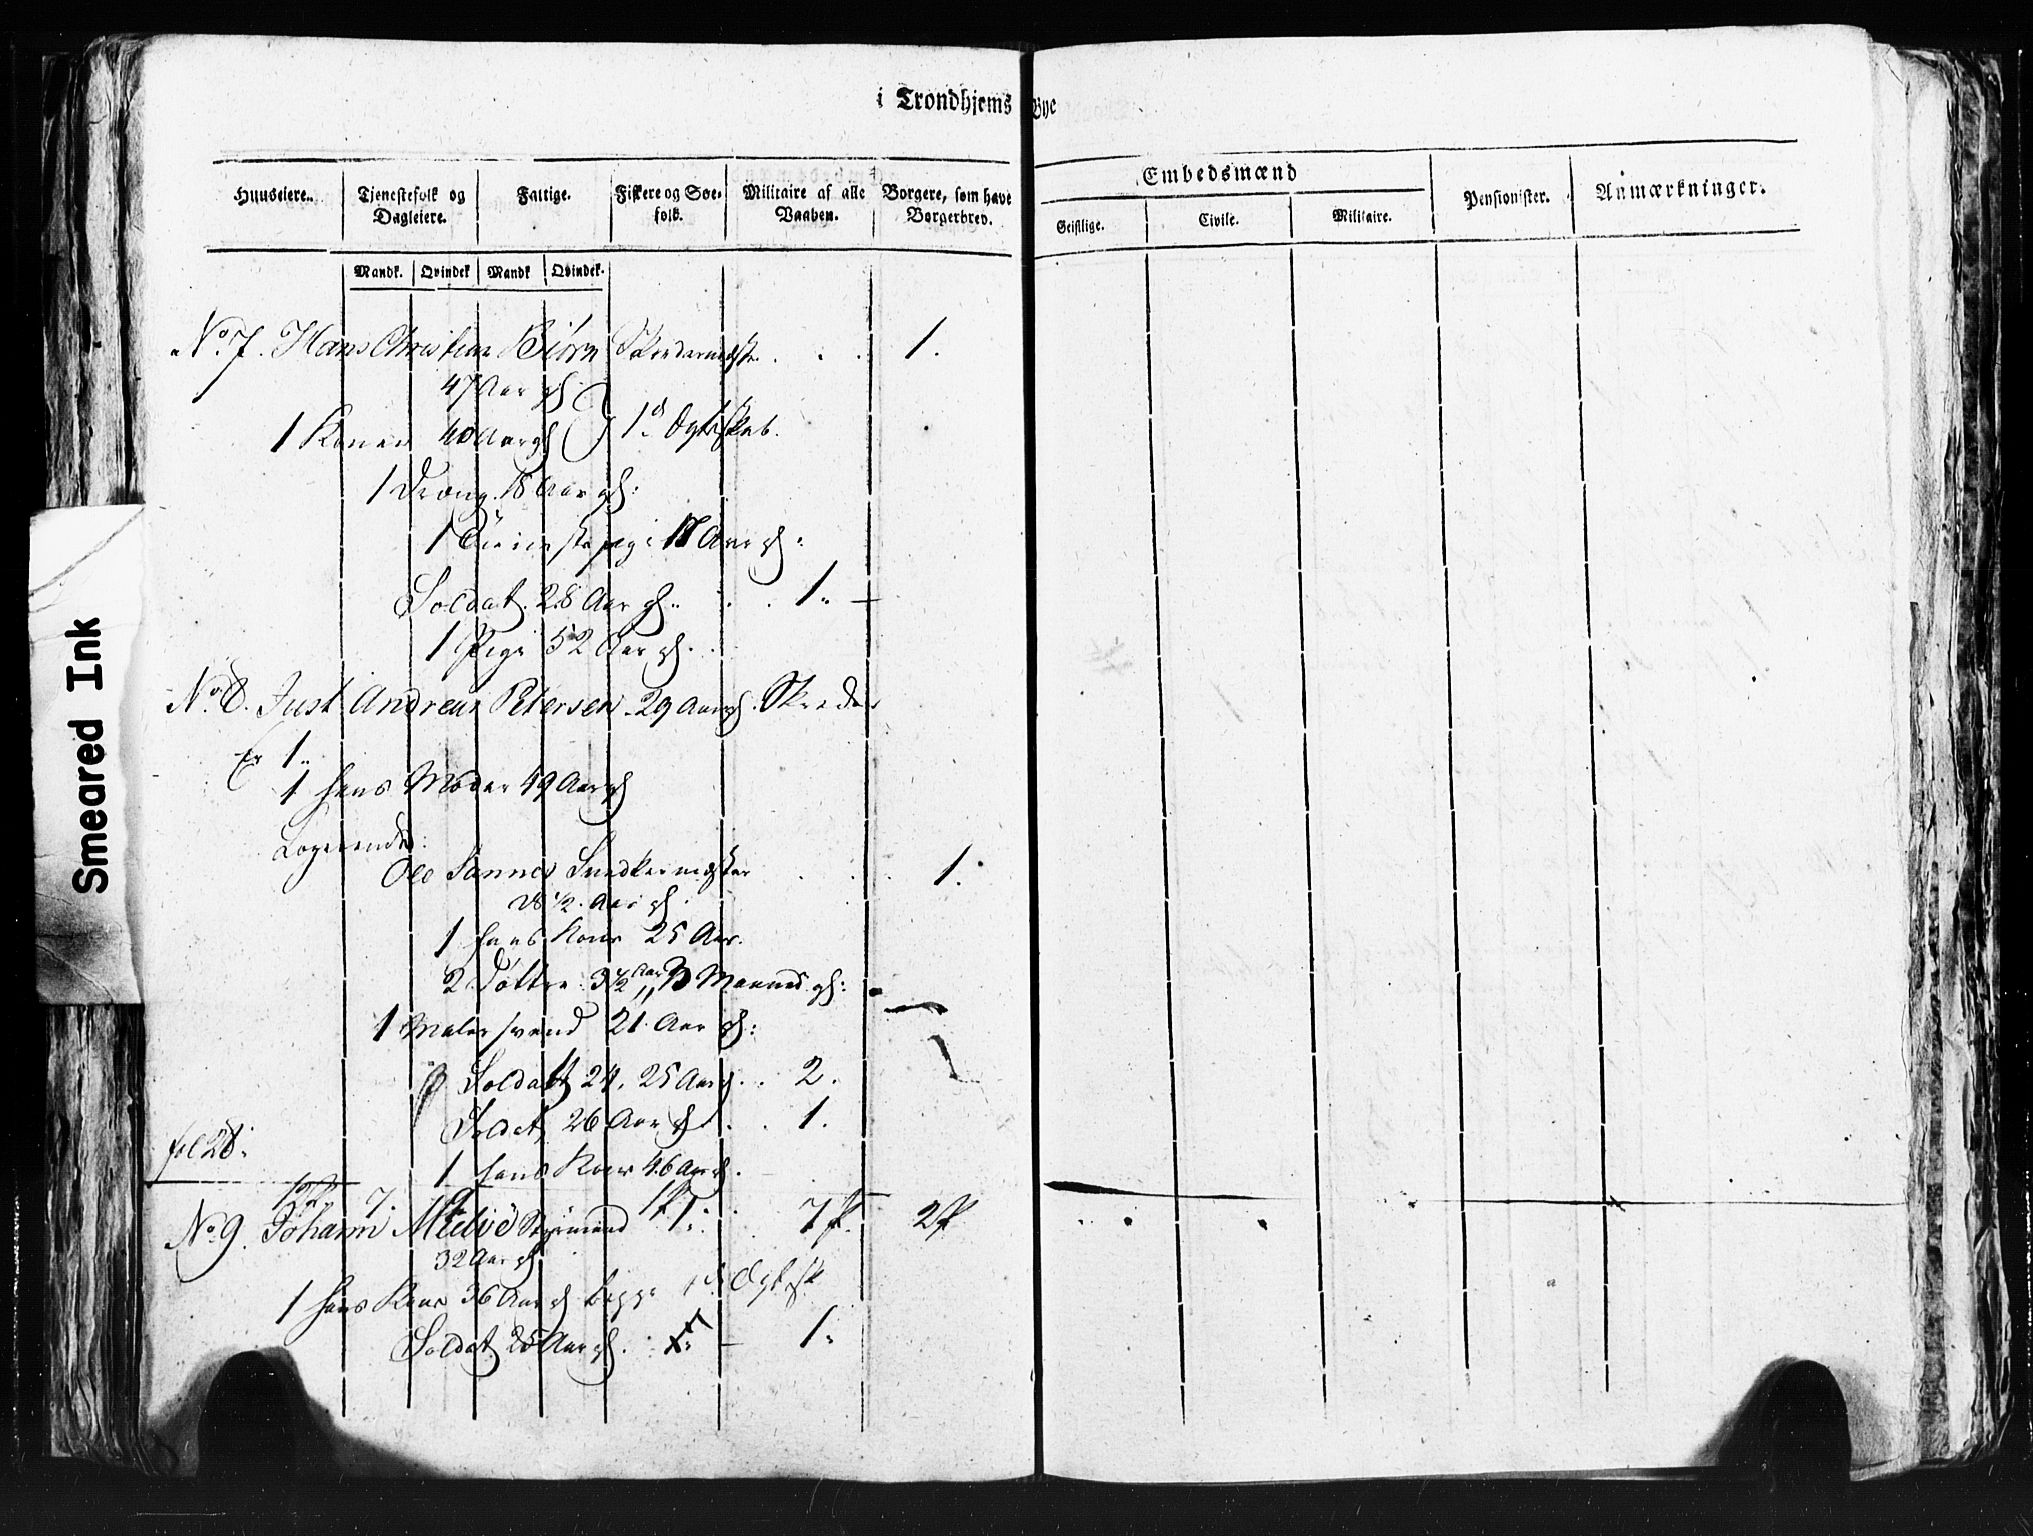 i Trondhjems Bye
Huuseiere. Tjenestefolk og Dagleiere. Fattige. Fiskere og Søe-folk. Militaire af alle Vaaben. Borgere, som have Borgerbrev. Embedsmænd Pensionister. Anmærkninger.
Geistlige. Civile. Militaire.
Mandk. Qvindek Mandk Qvindek.
No. 7. Hans Christian Biörn Skredermester . . . 1.
47 Aar gl
1 Konen 40 Aar gl 1ste Ægteskab.
1 Dreng. 18 Aar gl:
1 Tieneste pige 17 Aar gl:
Soldat. 28 Aar gl. . . 1. —
1 Pige 52 Aar gl.
No. 8. Just Andreas Petersen 29 Aar gl. Skreder
1.
1 hans Moder 49 Aar gl
Logerende:
Ole Sannes Snedkermester . . . 1.
28 1/2. Aar gl.
1 hans Kone 25 Aar.
2 Döttre 3 1/2 Aar, 3 Maaned gl:
1 Maler svend 21 Aar gl:
Soldat 24, 25 Aar gl. . 2.
Soldat 26 Aar gl . . 1.
fol 28.
1 hans Kone 46 Aar gl.
7. 7 2
No. 9. Johann Styrmand 1.
32 Aar gl
1 hans Kone 36 Aar gl begge Ægtesk
Soldat 25 Aar gl. — 1.
Smeared Ink